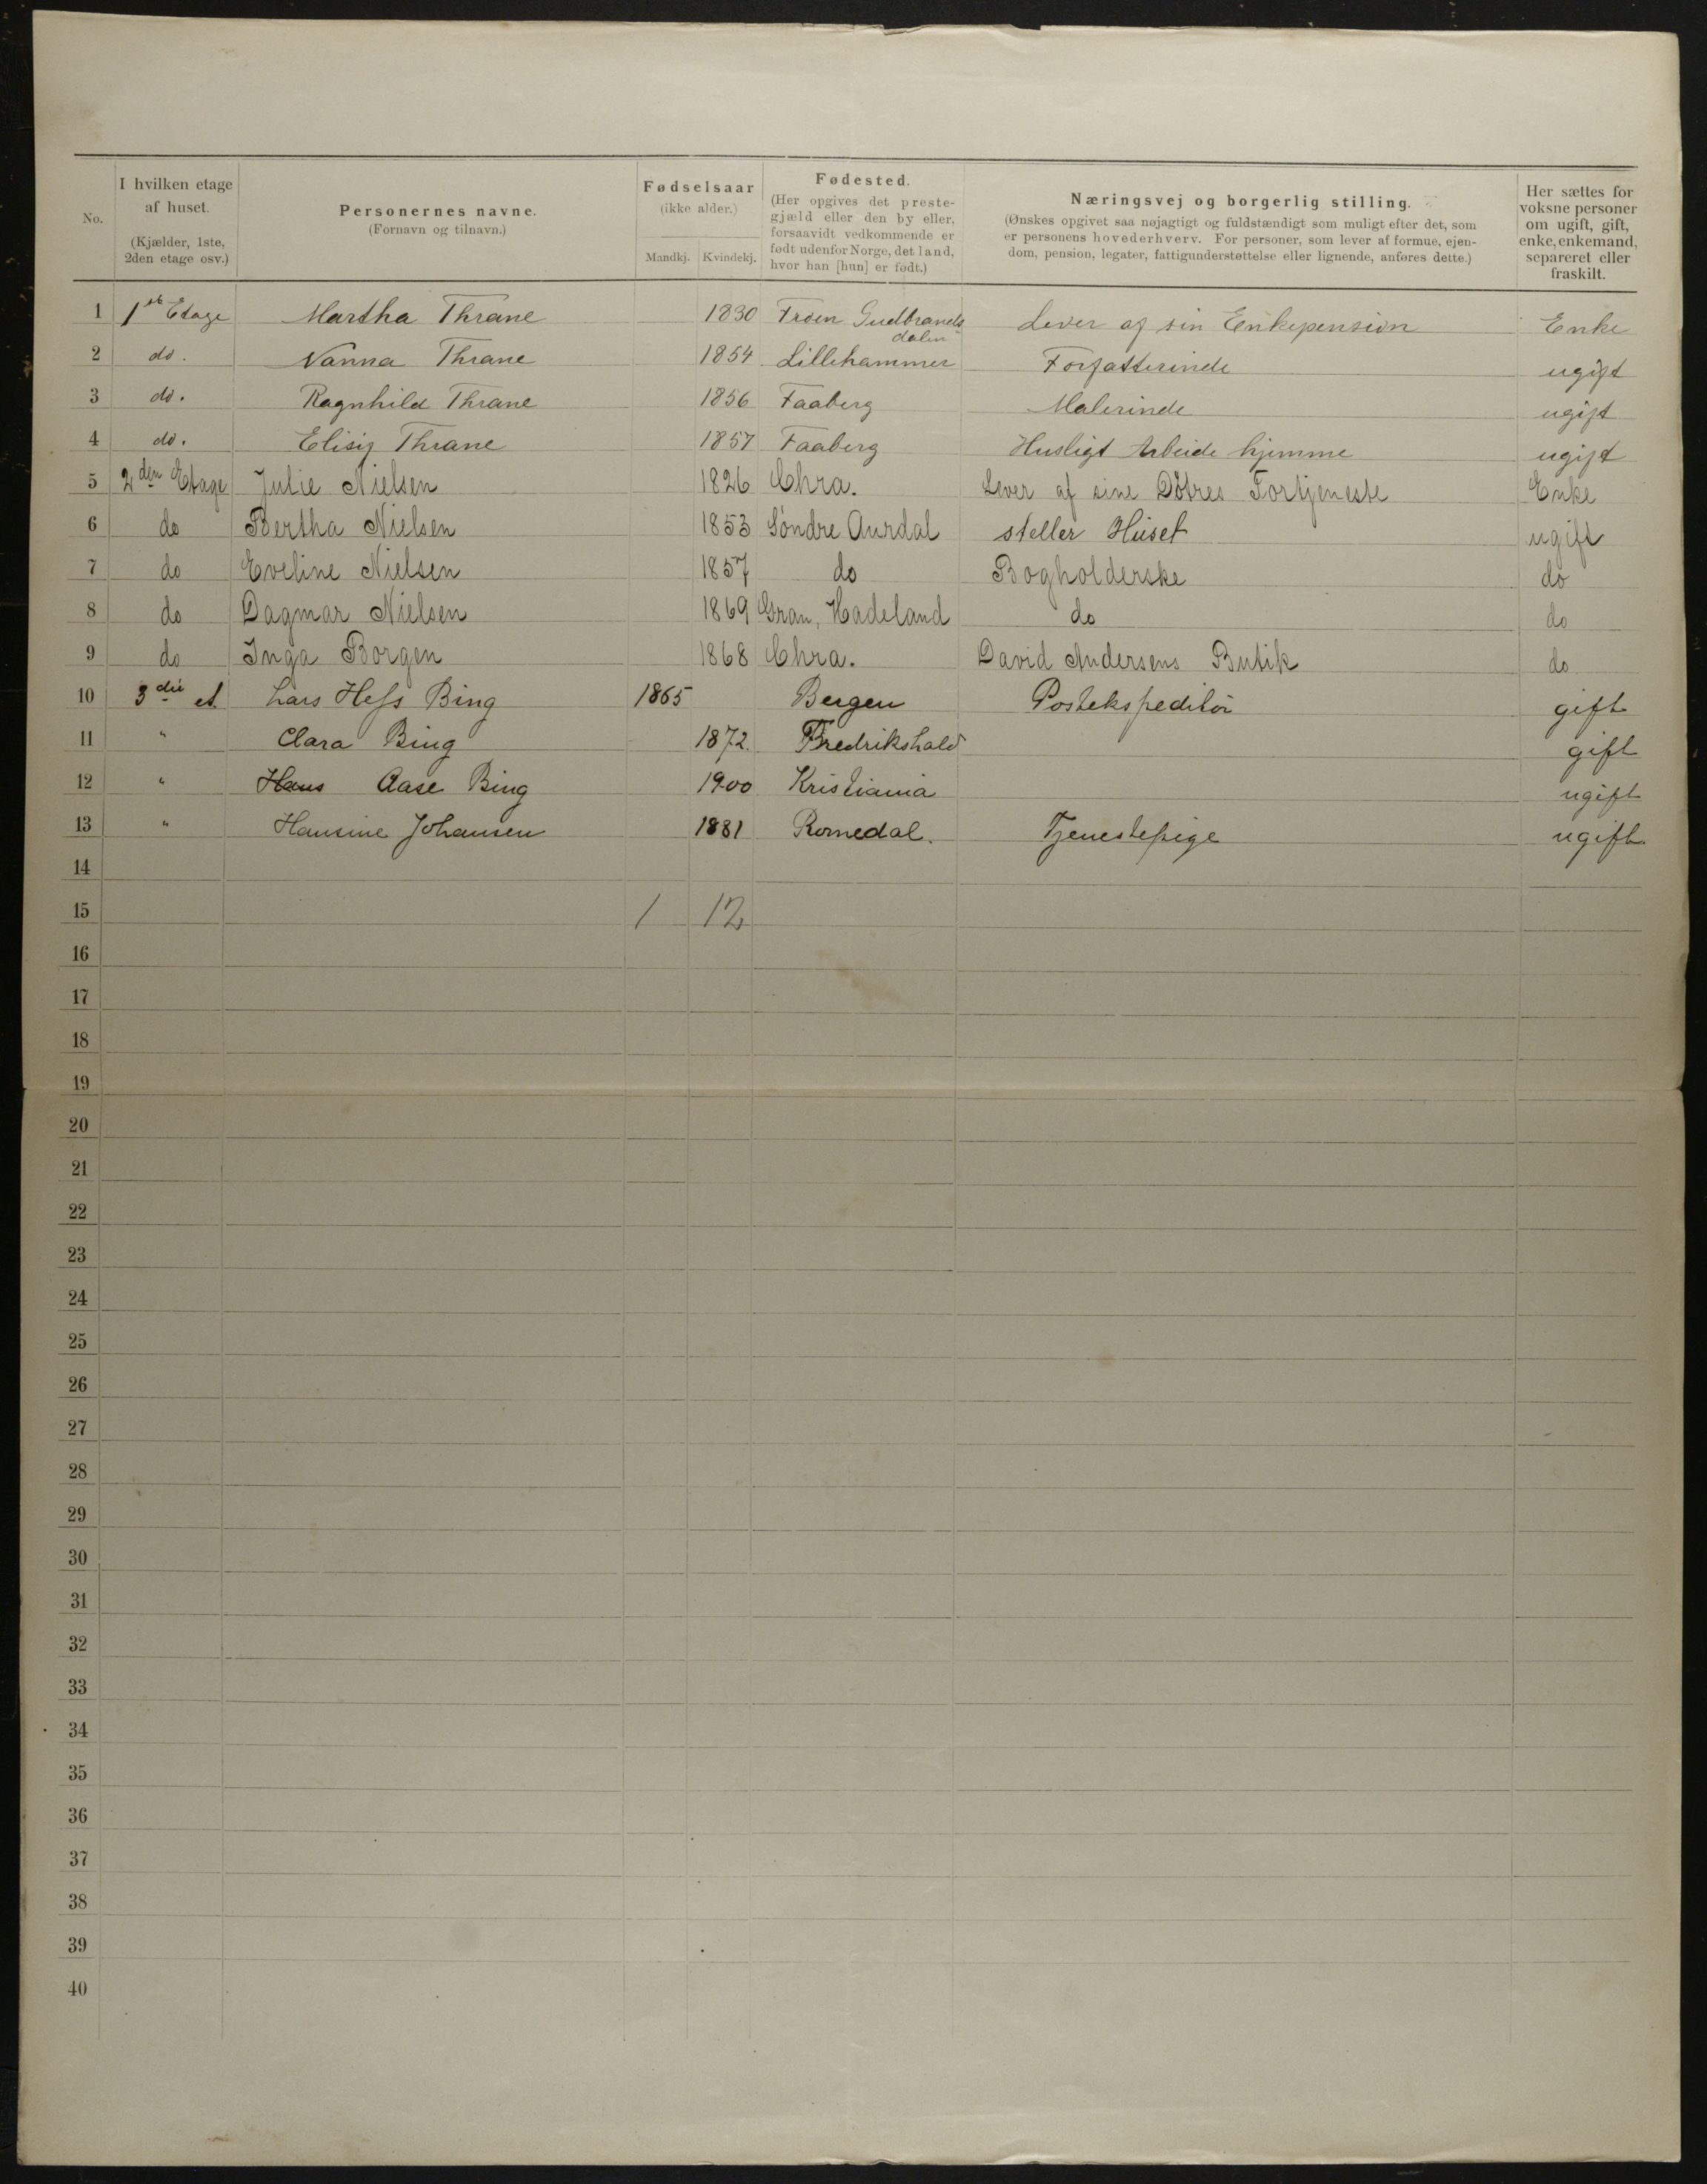 No.
I hvilken etage
af huset.
(Kjælder, 1ste,
2den etage osv.)
Personernes navne.
(Fornavn og tilnavn.)
Fødselsaar
(ikke alder.)
Mandkj. Kvindekj.
Fødested.
(Her opgives det preste-
gjæld eller den by eller,
forsaavidt vedkommende er
født udenfor Norge, det land,
hvor han [hun] er født.)
Næringsvej og borgerlig stilling.
(Ønskes opgivet saa nøjagtigt og fuldstændigt som muligt efter det, som
er personens hovederhverv. For personer, som lever af formue, ejen-
dom, pension, legater, fattigunderstøttelse eller lignende, anføres dette.)
Her sættes for
voksne personer
om ugift, gift,
enke, enkemand,
separeret eller
fraskilt.
1 1ste Etage Martha Thrane 1830 Froen Gudbrands- Lever af sin Enkepension Enke
dalen
2 do. Nanna Thrane 1854 Lillehammer Forfatterinde ugift
3 do. Ragnhild Thrane 1856 Faaberg Malerinde ugift
4 do. Elisif Thrane 1857 Faaberg Husligt Arbeide hjemme ugift
5 2den Etage Julie Nielsen 1826 Chra. Lever af sine Døtres Fortjeneste Enke
6 do Bertha Nielsen 1853 Søndre Aurdal steller Huset ugift
7 do Eveline Nielsen 1857 do Bogholderske do
8 do Dagmar Nielsen 1869 Gran, Hadeland do do
9 do Inga Borgen 1868 Chra. David Andersens Butik do
10 3die et. Lars Hess Bing 1865 Bergen Postekspeditør gift
11 " Clara Bing 1872. Fredrikshald gift
12 " Hans Aase Bing 1900 Kristiania ugift
13 " Hansine Johansen 1881 Romedal. Tjenestepige ugift.
14
15 1 12
16
17
18
19
20
21
22
23
24
25
26
27
28
29
30
31
32
33
34
35
36
37
38
39
40